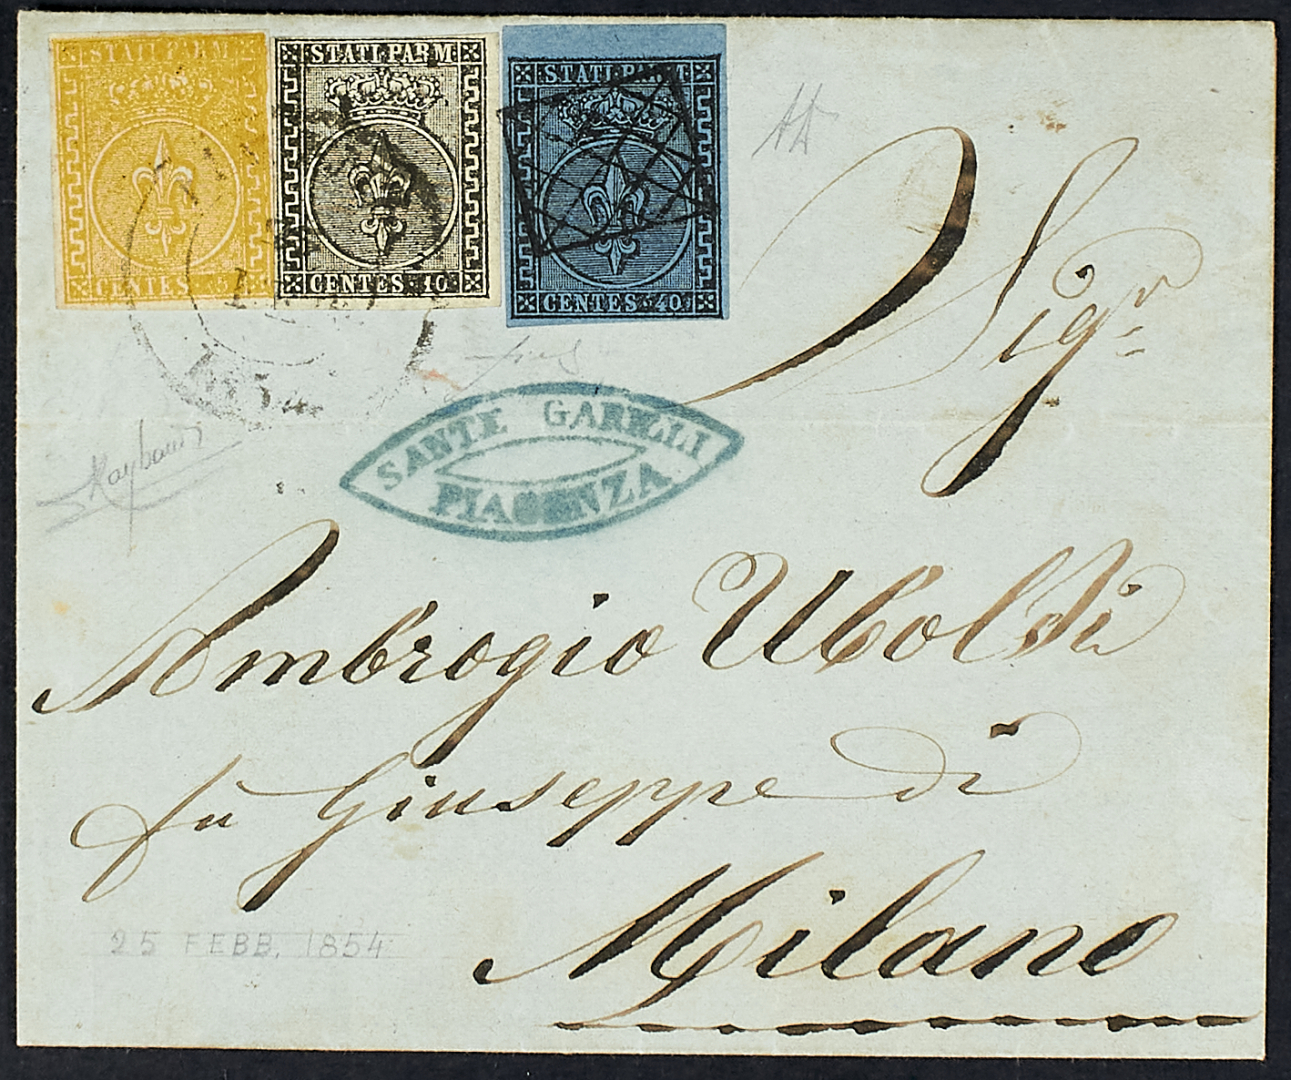 STATI PARM
CENTES. 5
STATI PARM
CENTES. 10
STATI PARM
CENTES. 40
SANTE GAREOLI
PIACENZA
Sigr
Ambrogio Uboldi
fu Giuseppe di
Milano
25 FEBB. 1854